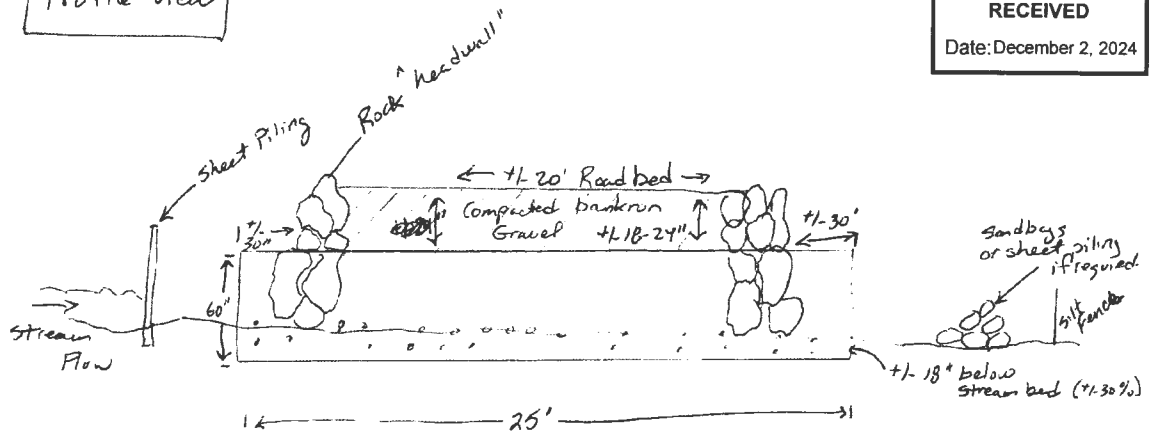 Profile View
RECEIVED
Date: December 2, 2024
Rock "headwall"
Sheet Piling
← +/- 20' Roadbed →
Compacted bankrun
Gravel +/- 18-24"
+/-
30"
+/- 30'
sandbags
or sheet piling
if required
silt
Fence
60"
Stream
Flow
+/- 18" below
stream bed (+/- 30%)
25'